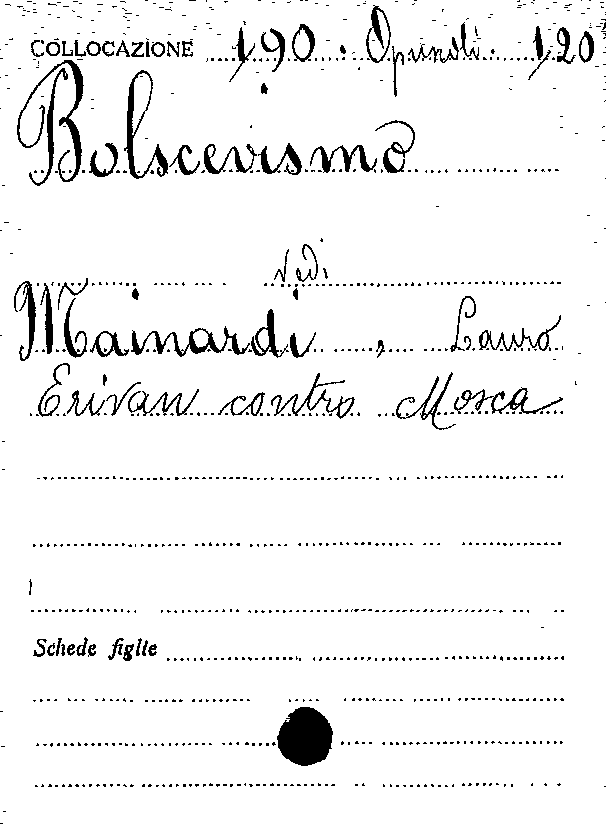 COLLOCAZIONE 190. Opuscoli. 120
Bolscevismo
Vedi
Mainardi, Lauro
Erivan contro Mosca
Schede figlie